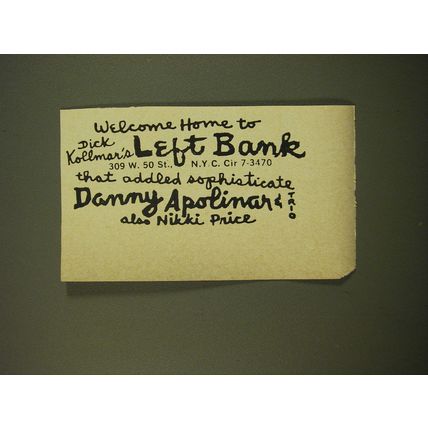 Welcome Home to
Dick Kollmar's Left Bank
309 W. 50 St., N.Y C. Cir 7-3470
that addled sophisticate
Danny Apolinar & TRIO
also Nikki Price